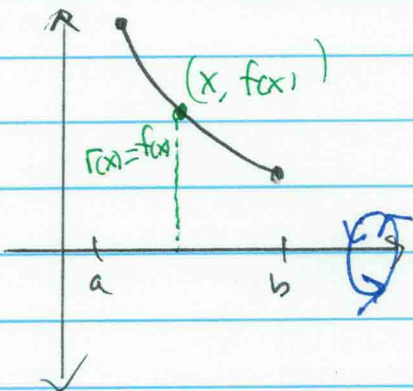 (x, f(x))
r(x)=f(x)
a b